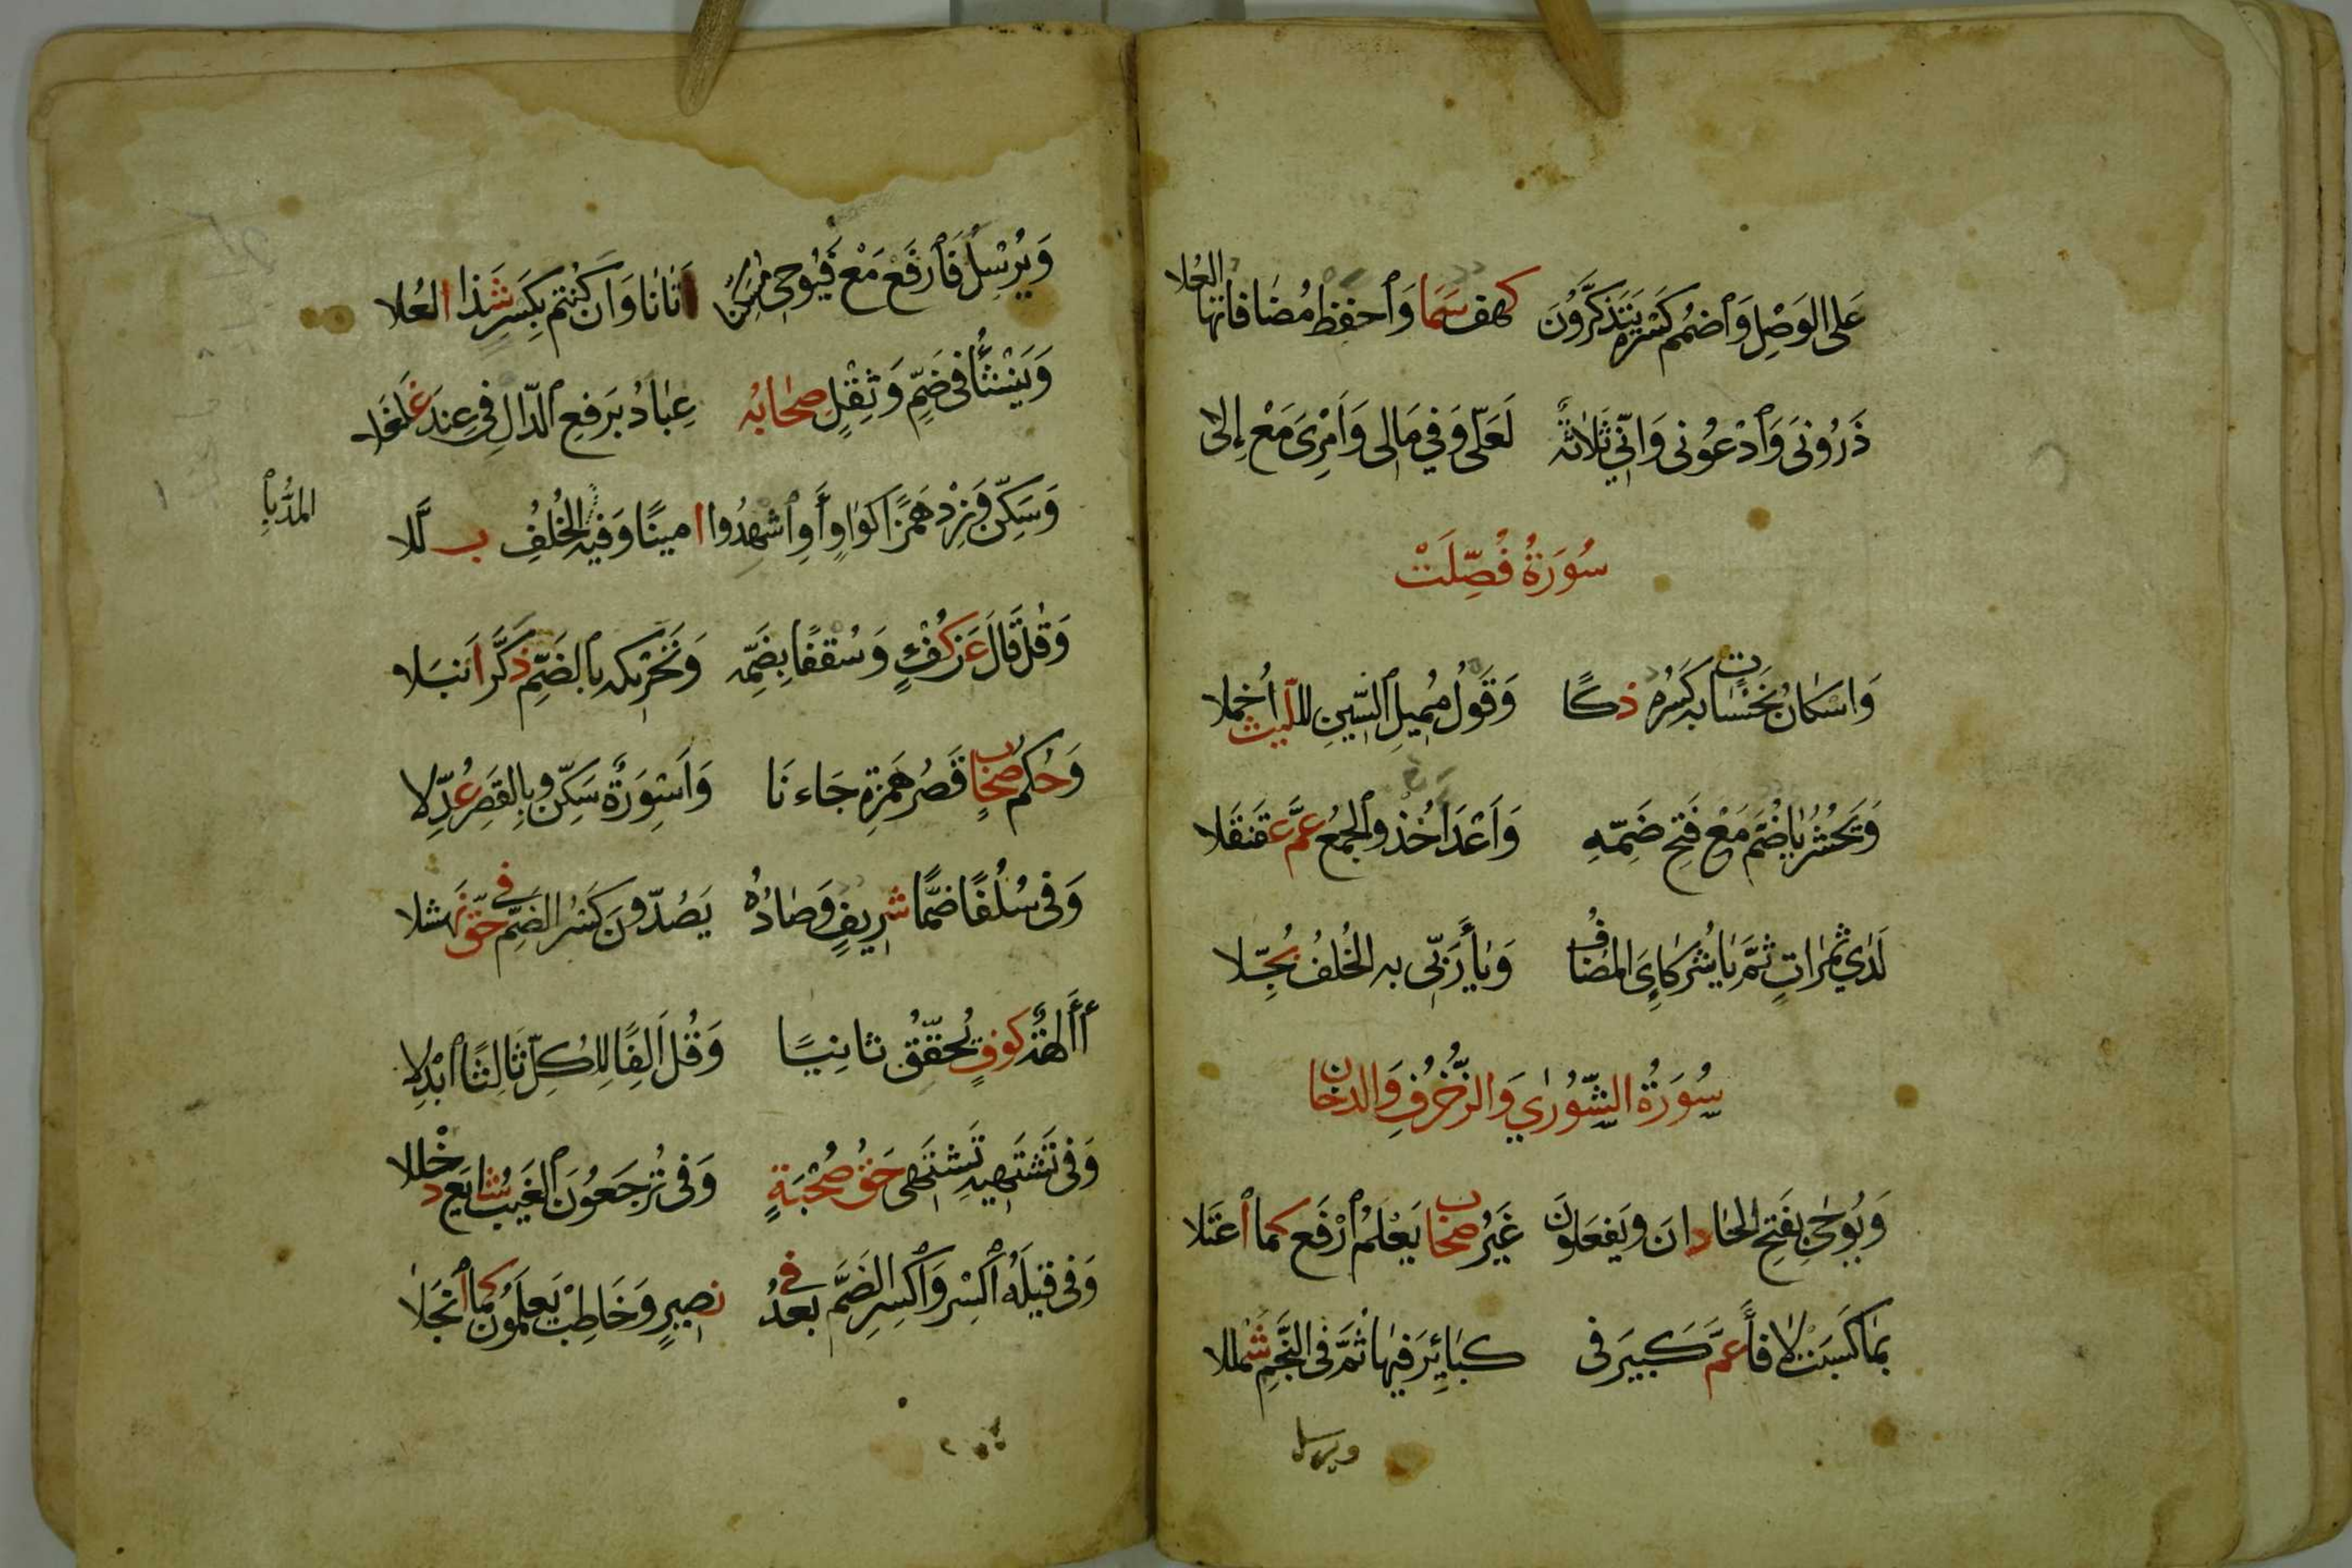 عَلَى الوَصْلِ وَٱضْمُمْ كَسْرَهُ يَتَذَكَّرُونَ كهف سَمَا وَٱحفظ مُضَافاتها العُلا
ذَرُونِىَ وَٱدْعُونِى وَاِنِّي ثَلَاثَةٌ لَعَلّى وَفِي مَالِى وَأَمْرِىَ مَعْ إِلى
سُورَةُ فُصِّلَتْ
وَاسْكَانُ نَحْسَاتٍ بِهِ كَسْرُهُ ذكًا وَقَولُ مُمِيلِ ٱلسِّينِ لِلَّيث أُخملا
وَنَحْشُرُ يَاءٌ ضُمَّ مَعْ فَتْحِ ضَمِّهِ وَأَعْدَاءُ خُذ والجمعُ عَمَّ عَقَنقَلا
لَدَى ثَمَراتٍ ثُمَّ يَا شُرَكَاءِىَ المضافُ وَيَا رَبِّى بِهِ الخُلفُ بُجِّلا
سُورَةُ الشُّورٰي وَالزُّخْرُفِ وَالدخان
وَيُوحَى بِفَتحِ الحَاءِ دانَ ويَفعَلُونَ غَيْرُ صحَاب يَعْلَمُ ٱرْفَع كما ٱعْتَلا
بِمَا كَسَبَتْ لا فَاءَ عَمَّ كَبِيرَ فى كَبَائِرَ فِيهَا ثُمَّ فى النَّجمِ شَمْللا
ويرسل
وَيُرْسِلُ فَٱرفَعْ مَعْ فَيُوحِى مُسَكِّنًا اَتَانَا وَاَن كُنتُم بِكَسْرٍ شَذَا العُلا
وَيَنْشَأُ فى ضَمٍّ وَثِقْلٍ صِحَابُه عِبَادُ بِرَفعِ ٱلدّالِ فِي عِندَ غَلغَلا
وَسَكِّنْ وَزِدْ هَمْزًا كَوَاوٍ أَوُٱشْهِدُوا امينًا وَفِيهِ الخُلفُ ب لّلا
المدُّ بِا
وَقُلْ قَالَ عَن كُفْؤٍ وَسُقْفًا بِضَمِّه وَتَحْرِيكِه بِالضَّمِّ ذكَّرَ اَنبَلا
وَحُكمُ صِحَابٍ قَصْرُ هَمزَةِ جَاءَنَا وَأَسْوِرَةٌ سَكِّن وبِالقَصرِ عُدِّلا
وَفى سُلُفًا ضَمَّا شرِيفٍ وَصَادُهُ يَصُدُّونَ كَسْرُ الضَّمِّ فى حَقّ نَهشلا
أَأَالِهَةٌ كوفٍ يُحَقِّقُ ثانِيًا وَقُلْ أَلِفًا لِلكُلِّ ثَالِثًا ٱبْدِلا
وَفى تَشْتَهِيهِ تَشْتَهِى حَقُّ صُحْبَةٍ وَفى تُرْجَعُونَ ٱلغَيبُ شَايَعَ دُخْللا
وَفى قِيلَهُ ٱكْسِرْ وَٱكْسِرِ الضَّمَّ بَعدُ فى نصِيرٍ وَخَاطِبْ يَعلَمُونَ كَمَا ٱنْجَلا